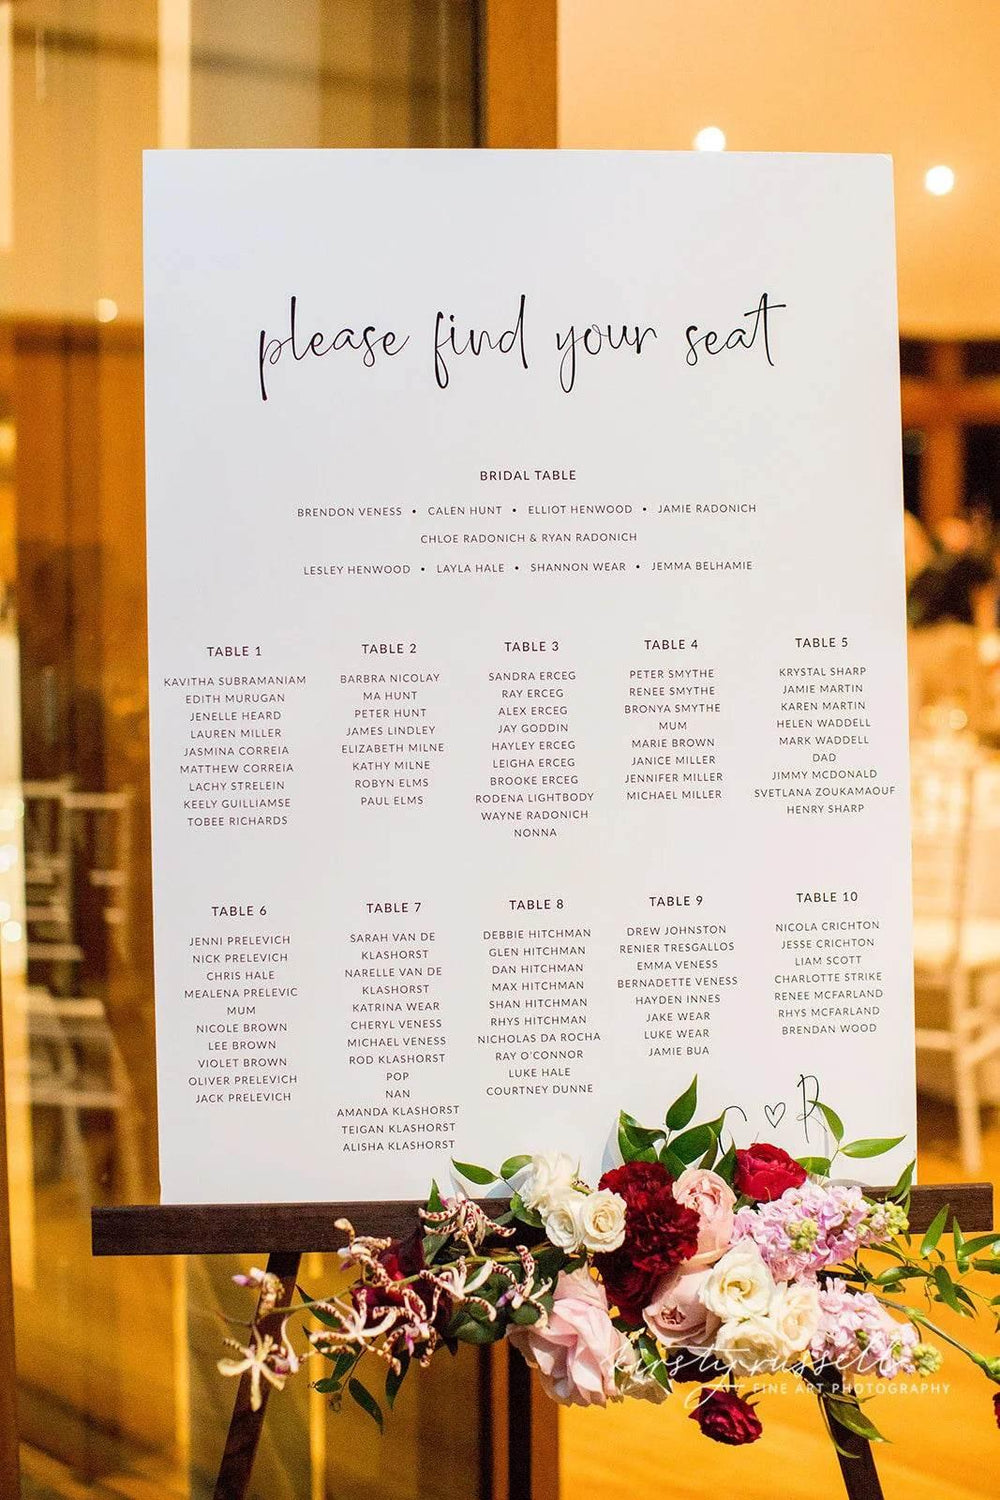 please find your seat
BRIDAL TABLE
BRENDON VENESS • CALEN HUNT • ELLIOT HENWOOD • JAMIE RADONICH
CHLOE RADONICH & RYAN RADONICH
LESLEY HENWOOD • LAYLA HALE • SHANNON WEAR • JEMMA BELHAMIE
TABLE 1
KAVITHA SUBRAMANIAM
EDITH MURUGAN
JENELLE HEARD
LAUREN MILLER
JASMINA CORREIA
MATTHEW CORREIA
LACHY STRELEIN
KEELY GUILLIAMSE
TOBEE RICHARDS
TABLE 2
BARBRA NICOLAY
MA HUNT
PETER HUNT
JAMES LINDLEY
ELIZABETH MILNE
KATHY MILNE
ROBYN ELMS
PAUL ELMS
TABLE 3
SANDRA ERCEG
RAY ERCEG
ALEX ERCEG
JAY GODDIN
HAYLEY ERCEG
LEIGHA ERCEG
BROOKE ERCEG
RODENA LIGHTBODY
WAYNE RADONICH
NONNA
TABLE 4
PETER SMYTHE
RENEE SMYTHE
BRONYA SMYTHE
MUM
MARIE BROWN
JANICE MILLER
JENNIFER MILLER
MICHAEL MILLER
TABLE 5
KRYSTAL SHARP
JAMIE MARTIN
KAREN MARTIN
HELEN WADDELL
MARK WADDELL
DAD
JIMMY MCDONALD
SVETLANA ZOUKAMAOUF
HENRY SHARP
TABLE 6
JENNI PRELEVICH
NICK PRELEVICH
CHRIS HALE
MEALENA PRELEVIC
MUM
NICOLE BROWN
LEE BROWN
VIOLET BROWN
OLIVER PRELEVICH
JACK PRELEVICH
TABLE 7
SARAH VAN DE
KLASHORST
NARELLE VAN DE
KLASHORST
KATRINA WEAR
CHERYL VENESS
MICHAEL VENESS
ROD KLASHORST
POP
NAN
AMANDA KLASHORST
TEIGAN KLASHORST
ALISHA KLASHORST
TABLE 8
DEBBIE HITCHMAN
GLEN HITCHMAN
DAN HITCHMAN
MAX HITCHMAN
SHAN HITCHMAN
RHYS HITCHMAN
NICHOLAS DA ROCHA
RAY O'CONNOR
LUKE HALE
COURTNEY DUNNE
TABLE 9
DREW JOHNSTON
RENIER TRESGALLOS
EMMA VENESS
BERNADETTE VENESS
HAYDEN INNES
JAKE WEAR
LUKE WEAR
JAMIE BUA
TABLE 10
NICOLA CRICHTON
JESSE CRICHTON
LIAM SCOTT
CHARLOTTE STRIKE
RENEE MCFARLAND
RHYS MCFARLAND
BRENDAN WOOD
♡ R
kirsty russell
FINE ART PHOTOGRAPHY